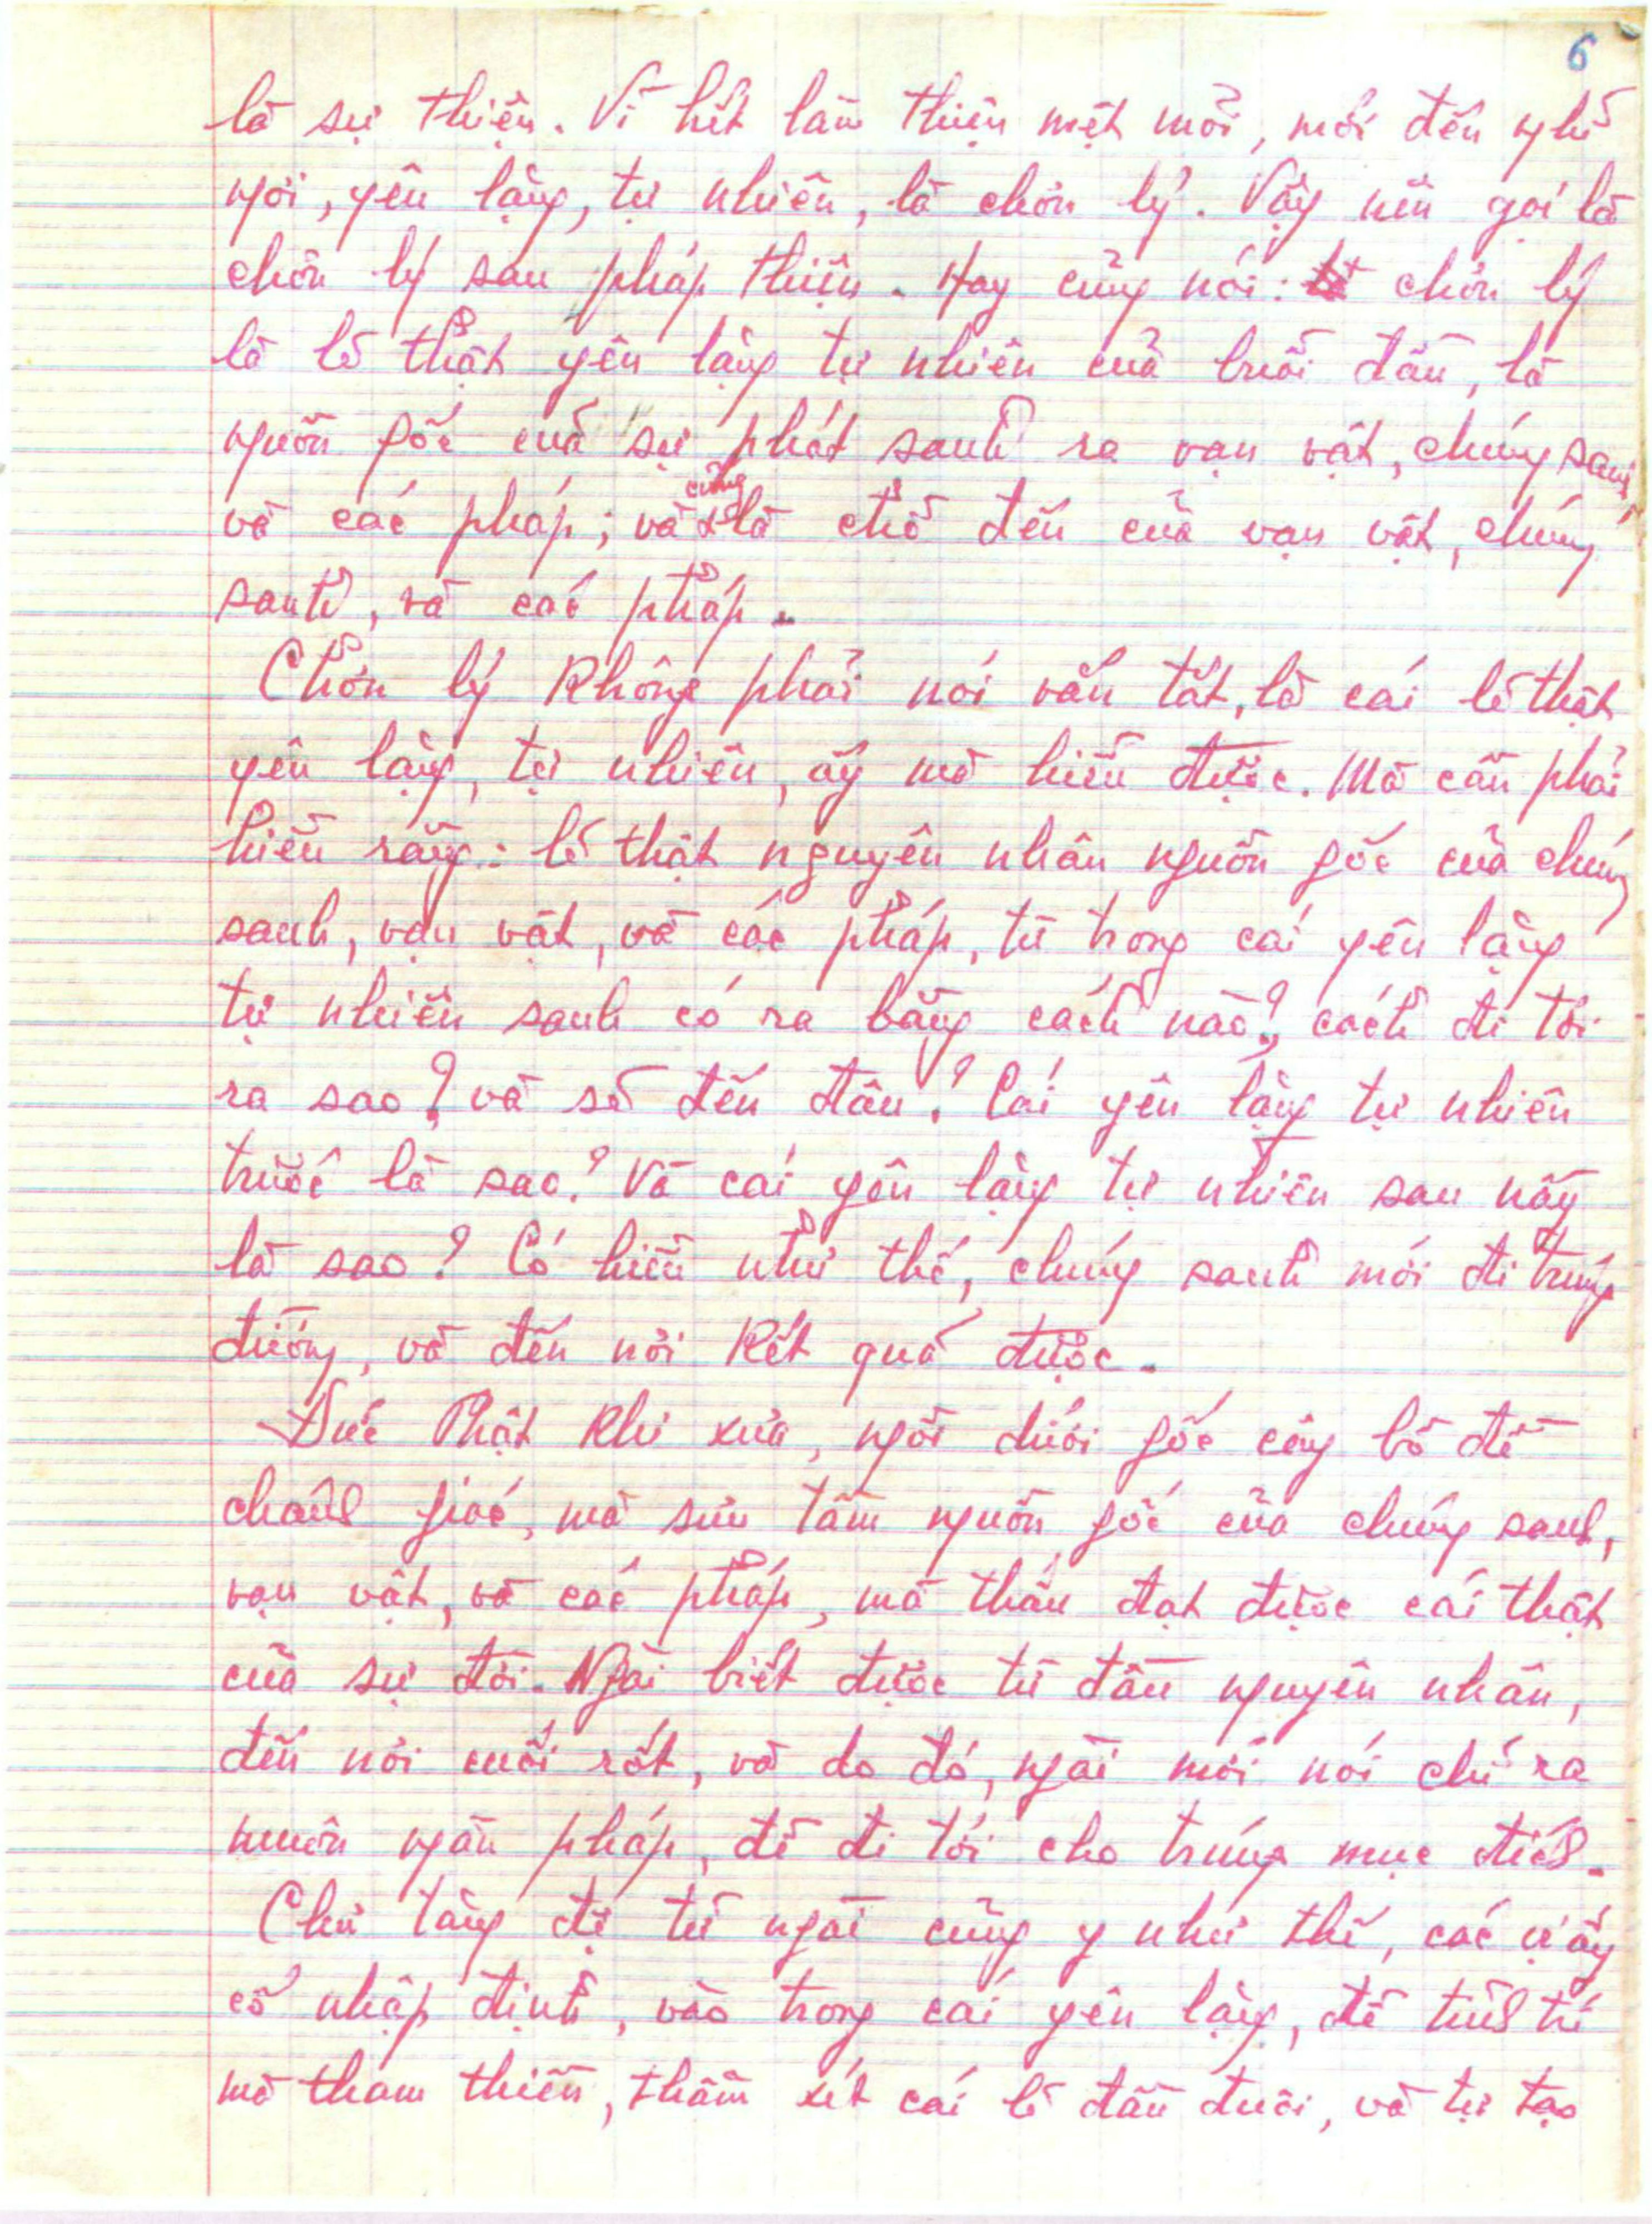 6
là sự thiện. Vì hết làm thiện mệt mỏi, mới đến nghỉ
ngơi, yên lặng, tự nhiên, là chơn lý. Vậy nên gọi là
chơn lý sau pháp thiện. Hay cũng nói: chơn lý
là lẽ thật yên lặng tự nhiên của buổi đầu, là
nguồn gốc của sự phát sanh ra vạn vật, chúng sanh,
và các pháp; và cũng là chỗ đến của vạn vật, chúng
sanh, và các pháp.
Chơn lý không phải nói vắn tắt, là cái lẽ thật
yên lặng, tự nhiên, ấy mà hiểu được. Mà cần phải
hiểu rằng: lẽ thật nguyên nhân nguồn gốc của chúng
sanh, vạn vật, và các pháp, từ trong cái yên lặng
tự nhiên sanh có ra bằng cách nào? cách đi tới
ra sao? và sẽ đến đâu? Cái yên lặng tự nhiên
trước là sao? Và cái yên lặng tự nhiên sau nầy
là sao? Có hiểu như thế, chúng sanh mới đi trúng
đường, và đến nơi kết quả được.
Đức Phật khi xưa, ngồi dưới gốc cây bồ đề
chánh giác, mà sưu tầm nguồn gốc của chúng sanh,
vạn vật, và các pháp, mà thấu đạt được cái thật
của sự đời. Ngài biết được từ đầu nguyên nhân,
đến nơi cuối rốt, và do đó, ngài mới nói chỉ ra
muôn ngàn pháp, để đi tới cho trúng mục đích.
Chư tăng đệ tử ngài cũng y như thế, các vị ấy
cố nhập định, vào trong cái yên lặng, để tỉnh trí
mà tham thiền, thầm xét cái lẽ đầu đuôi, và tự tạo